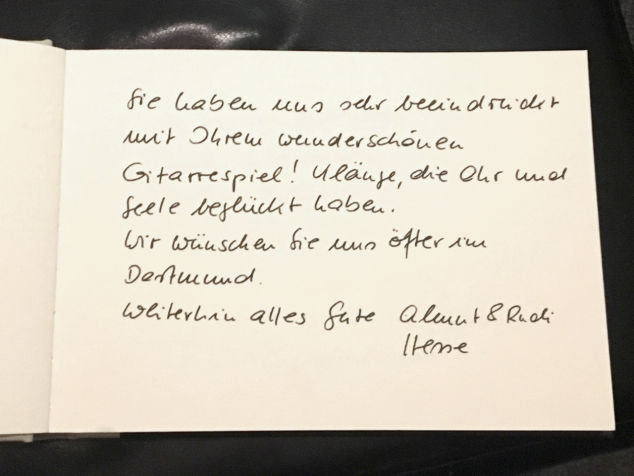 Sie haben uns sehr beeindruckt
mit Ihrem wunderschönen
Gitarrespiel! Klänge, die Ohr und
Seele beglückt haben.
Wir wünschen Sie uns öfter in
Dortmund.
Weiterhin alles Gute Almut & Rudi
Hesse